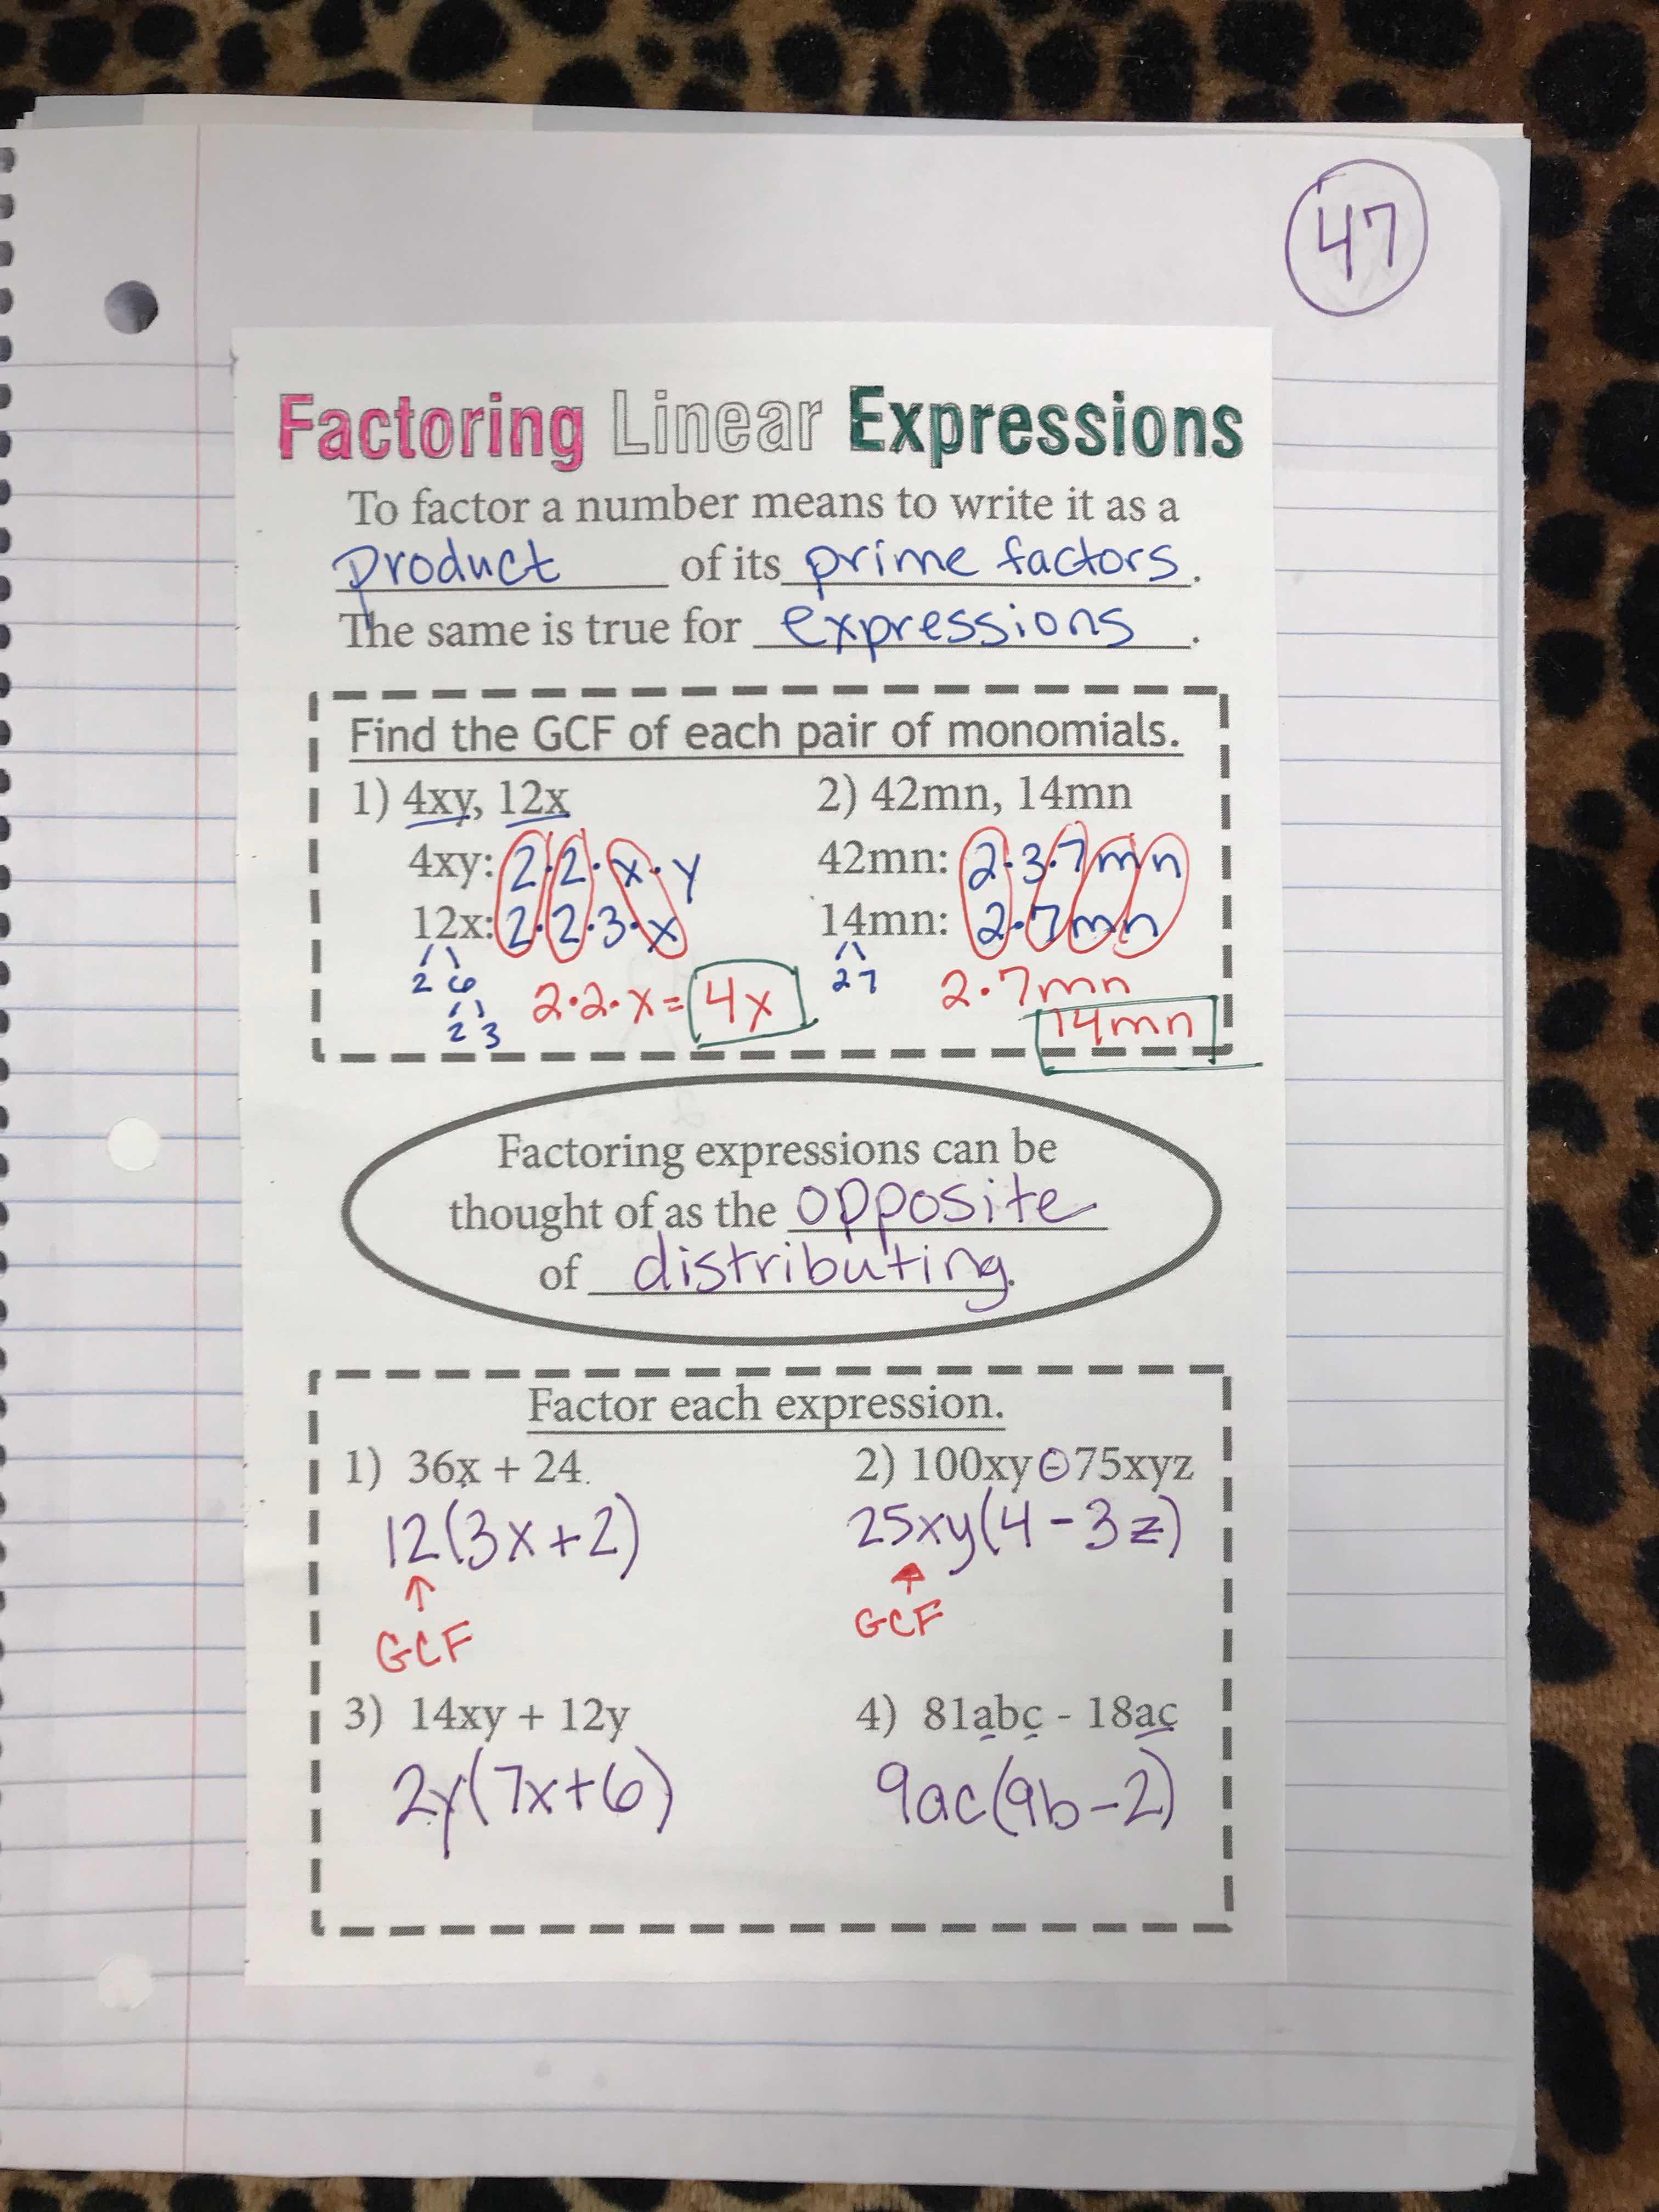 47
Factoring Linear Expressions
To factor a number means to write it as a
product of its prime factors.
The same is true for expressions.
Find the GCF of each pair of monomials.
1) 4xy, 12x
4xy: 2·2·x·y
12x: 2·2·3·x
2 6
2 3
2·2·x=4x
2) 42mn, 14mn
42mn: 2·3·7mn
14mn: 2·7mn
2 7
2·7mn
14mn
Factoring expressions can be
thought of as the opposite
of distributing.
Factor each expression.
1) 36x + 24.
12(3x+2)
↑
GCF
2) 100xy - 75xyz
25xy(4-3z)
↑
GCF
3) 14xy + 12y
2y(7x+6)
4) 81abc - 18ac
9ac(9b-2)